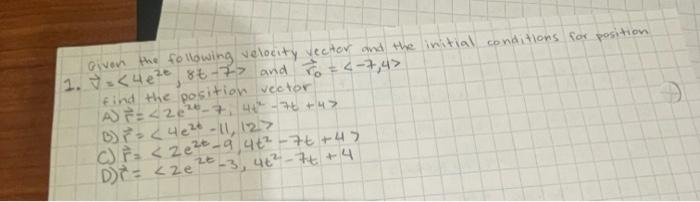 Given the following velocity vector and the initial conditions for position
1. v⃗ = <4e^2t, 8t-7> and r⃗₀ = <-7,4>
Find the position vector
A) r⃗ = <2e^2t-7, 4t²-7t+4>
B) r⃗ = <4e^2t-11, 12>
C) r⃗ = <2e^2t-9, 4t²-7t+4>
D) r⃗ = <2e^2t-3, 4t²-7t+4